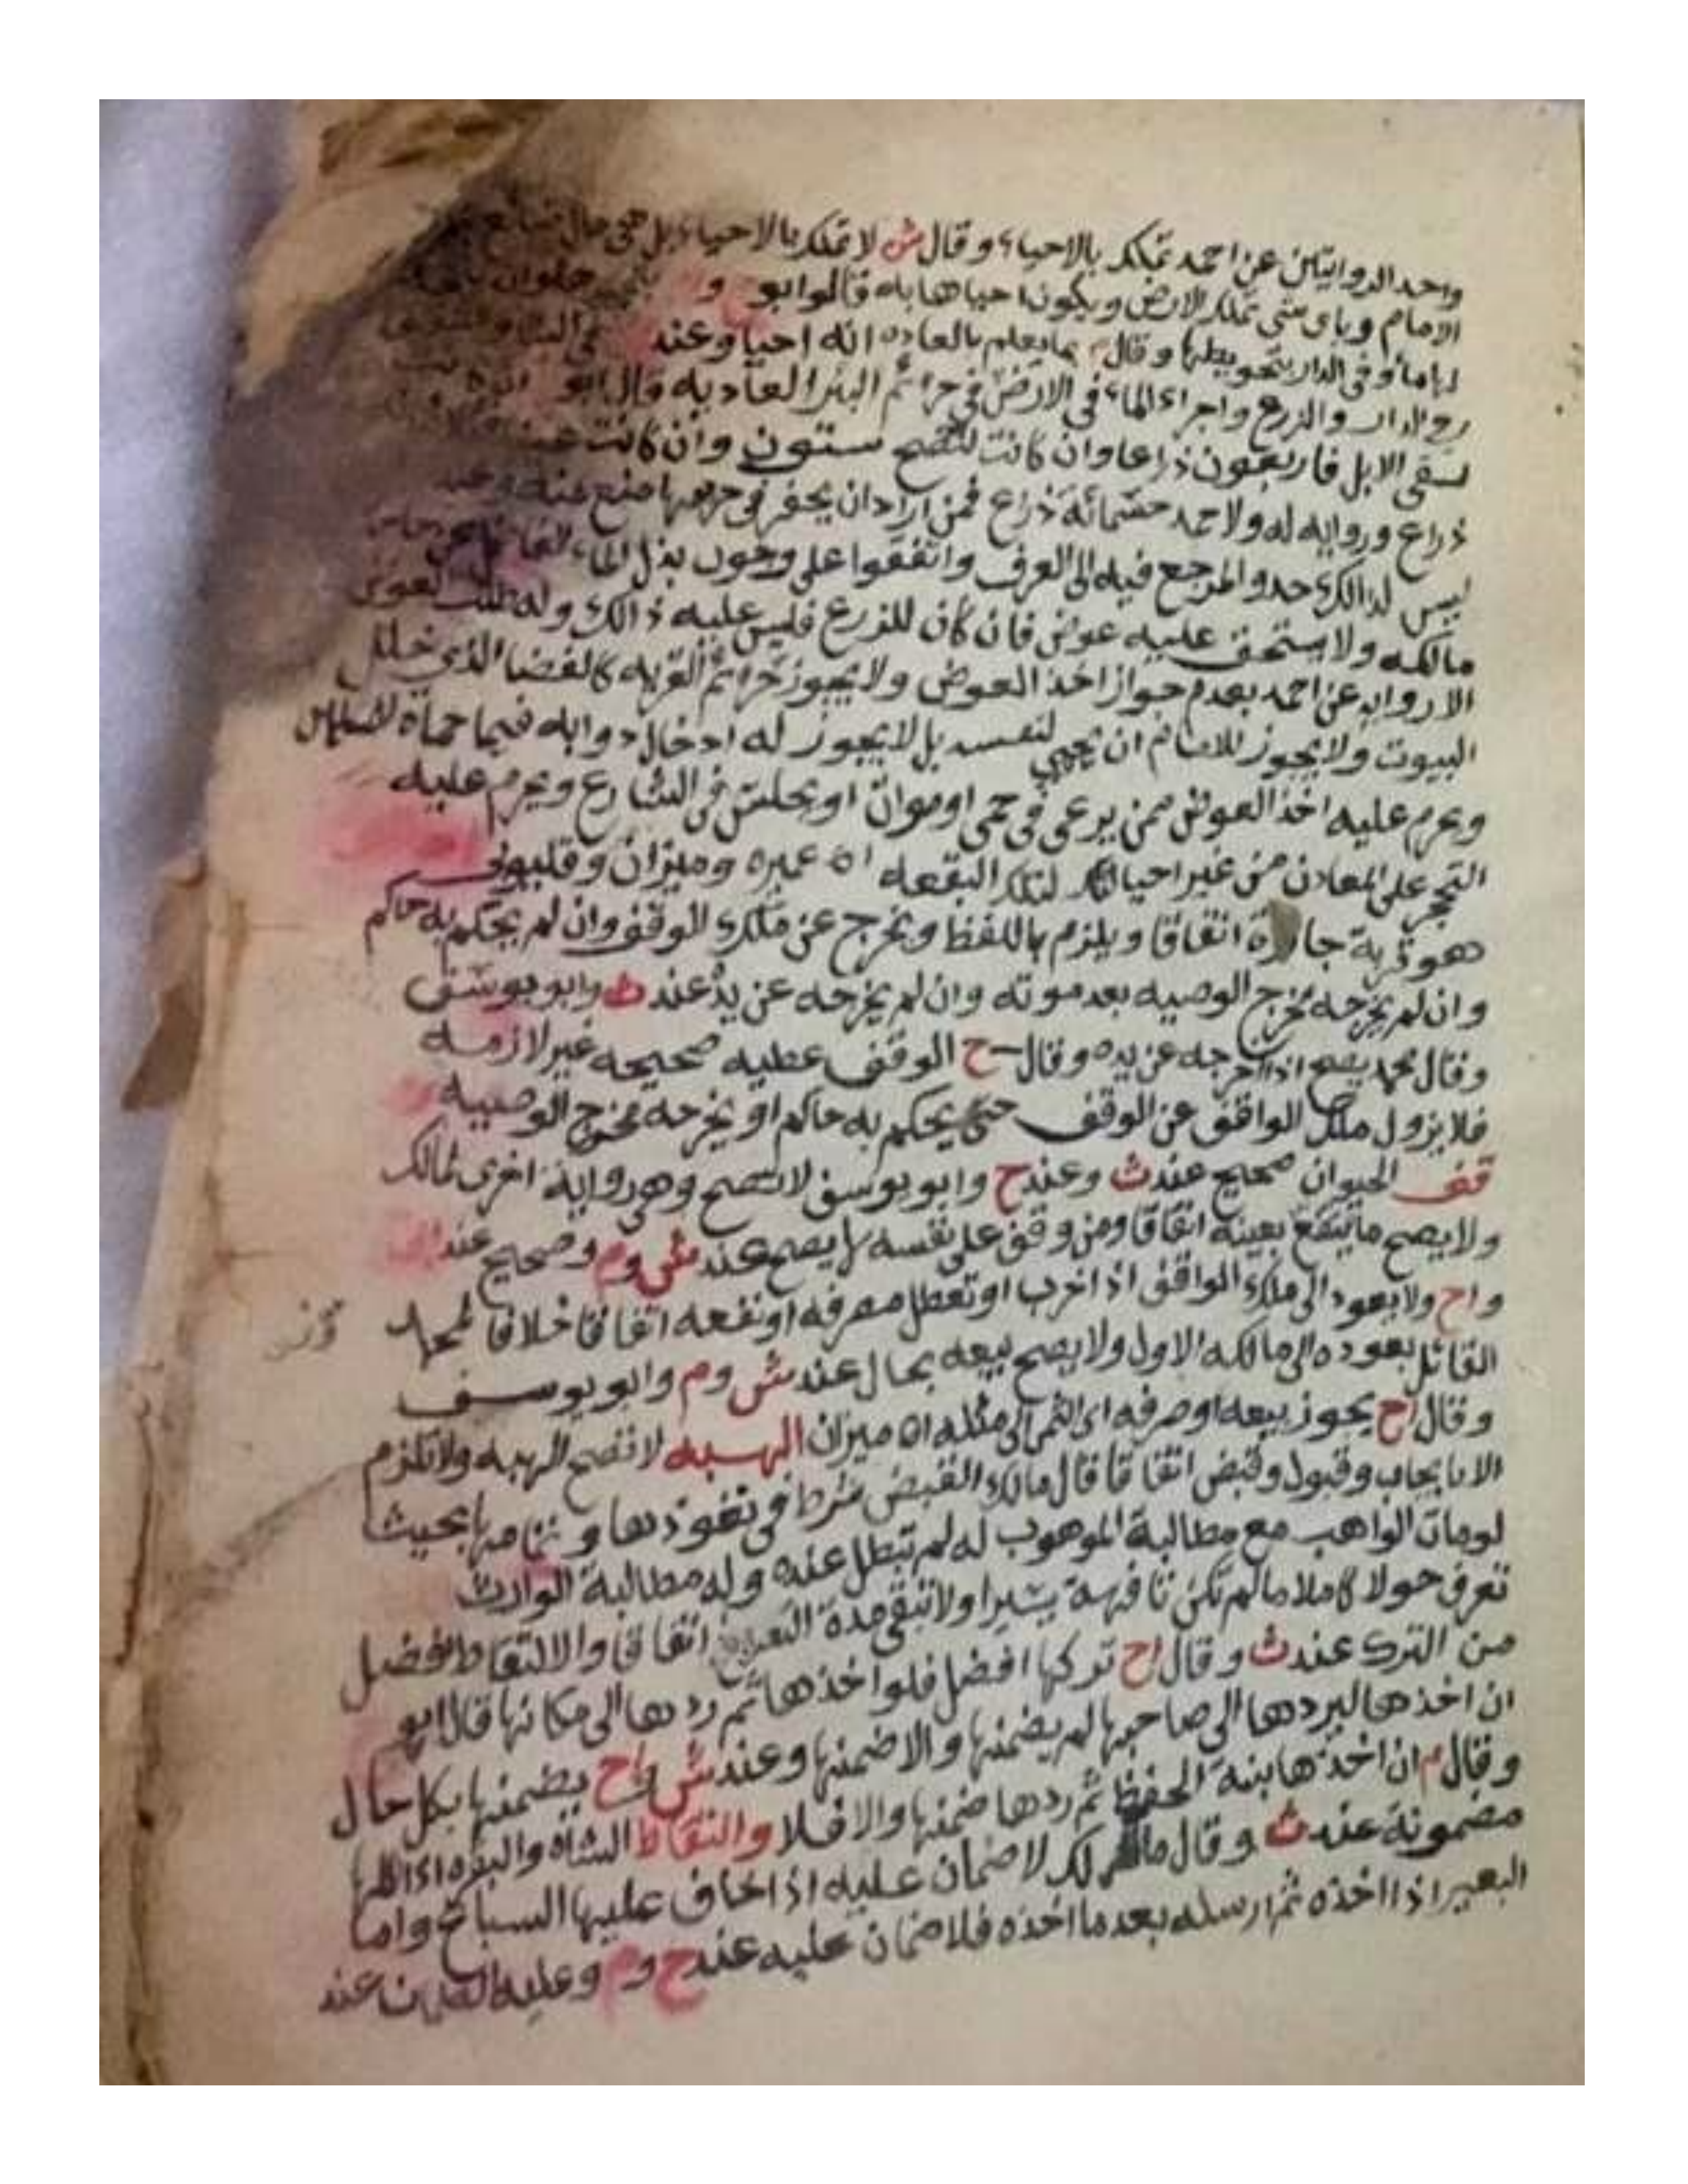 واحد الروايتين عن احمد تملك بالاحياء وقال ش لا تملك بالاحياء بل
الامام وباي شي تملك الارض ويكون احياها به قالوا ابو و
او في الدار بتحويطها وقال م بما يعلم بالعاده انه احيا وعند
والزرع واجراء الماء في الارض في حرائم البئر العاديه قال ابو
لسقي الابل فاربعون ذراعا وان كانت للنضح ستون وان كانت
ذراع ورواية له ولاحمد خمسمائة ذراع فمن اراد ان يحفر في حريمها منع منه وعند
ليس لذالك حد والمرجع فيه الى العرف واتفقوا على وجوب بذل الماء
مالكه ولا يستحق عليه عوض فان كان للزرع فليس عليه ذالك وله طلب العوض
الا روايه عن احمد بعدم جواز اخذ العوض ولا يجوز حرائم القريه كالفضا الذي خلل
البيوت ولا يجوز للامام ان يحيي لنفسه بل لا يجوز له ادخال دوابه فيما حماه للمسلمين
ويحرم عليه اخذ العوض ممن يرعى في حمى او موات او يجلس في الشارع ويحرم عليه
التحجر على المعادن من غير احيا لتلك البقعه اه عميره وميزان وقليوبي
هو قربة جارة اتفاقا ويلزم باللفظ ويخرج عن ملك الوقف وان لم يحكم به حاكم
وان لم يخرجه مخرج الوصيه بعد موته وان لم يخرجه عن يد عند ث وابو يوسف
وقال محمد يصح اذا اخرجه عن يده وقال ح الوقف عطيه صحيحه غير لازمه
فلا يزول ملك الواقف عن الوقف حتى يحكم به حاكم او يخرجه مخرج الوصيه
قف الحيوان صحيح عند ث وعند ح وابو يوسف لا تصح وهي رواية اخرى لمالك
ولا يصح ما ينتفع بعينه اتفاقا ومن وقف على نفسه لم يصح عند ش وم وصحيح عند
واح ولا يعود الى ملك الواقف اذا خرب او تعطل مصرفه او نفعه اتفاقا خلافا لمحمد
القائل بعوده الى مالكه الاول ولا يصح بيعه بحال عند ش وم وابو يوسف
وقال اح يجوز بيعه او صرفه اي الثمن الى مثله اه ميزان الهبه لا تصح الهبه ولا تلزم
الا بايجاب وقبول وقبض اتفاقا قال مالك القبض شرط في نفوذها وتمامها بحيث
لو مات الواهب مع مطالبة الموهوب له لم تبطل عنه وله مطالبة الوارث
تعرف حولا كاملا ما لم تكن تافهة يسيرا ولا تبقى مدة التعريف اتفاقا والالتقاط افضل
من الترك عند ث وقال اح تركها افضل فلو اخذها ثم ردها الى مكانها قال ابو
ان اخذها ليردها الى صاحبها لم يضمنها والا ضمنها وعند ش واح يضمنها بكل حال
وقال م ان اخذها بنية الحفظ ثم ردها ضمنها والا فلا والتقاط الشاه والبقره
مضمونة عند ث وقال مالك لا ضمان عليه اذا خاف عليها السباع واما
البعير اذا اخذه ثم ارسله بعد ما اخذه فلا ضمان عليه عند ح وم وعليه الضمان عند